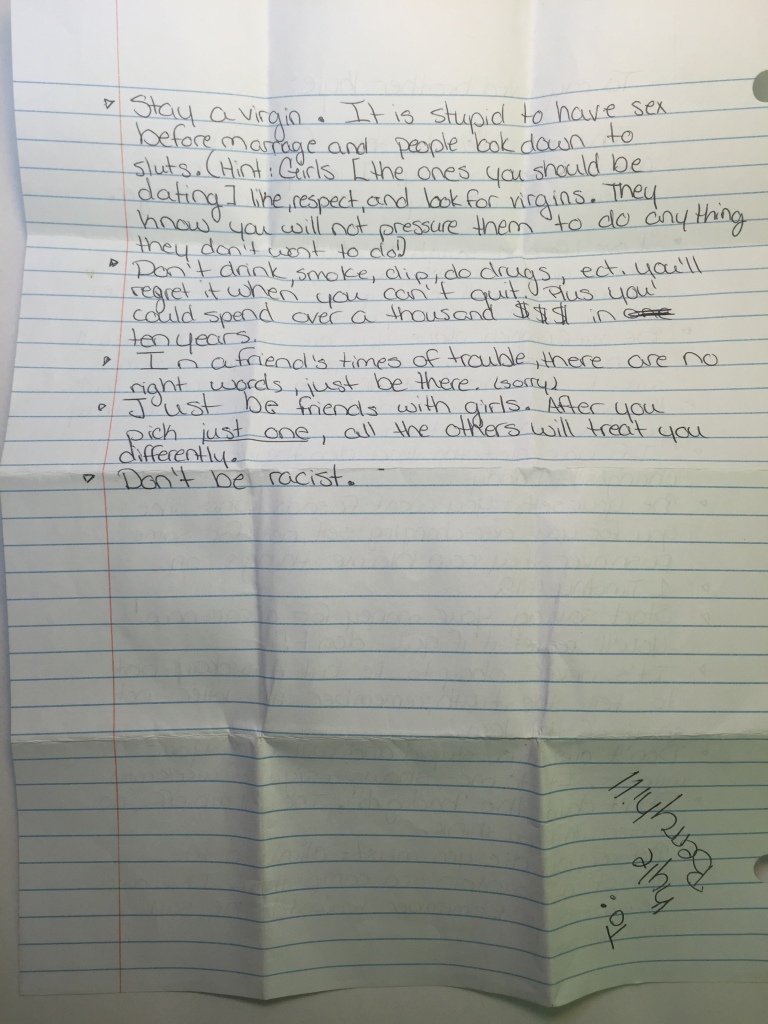 Stay a virgin. It is stupid to have sex
before marrage and people look down to
sluts. (Hint: Girls [the ones you should be
dating] like, respect, and look for virgins. They
know you will not pressure them to do anything
they don't want to do!)
Don't drink, smoke, dip, do drugs, ect. you'll
regret it when you can't quit. Plus you
could spend over a thousand $$$ in
ten years.
In a friend's times of trouble, there are no
right words, just be there. (sorry)
Just be friends with girls. After you
pick just one, all the others will treat you
differently.
Don't be racist.
To:
Kyle